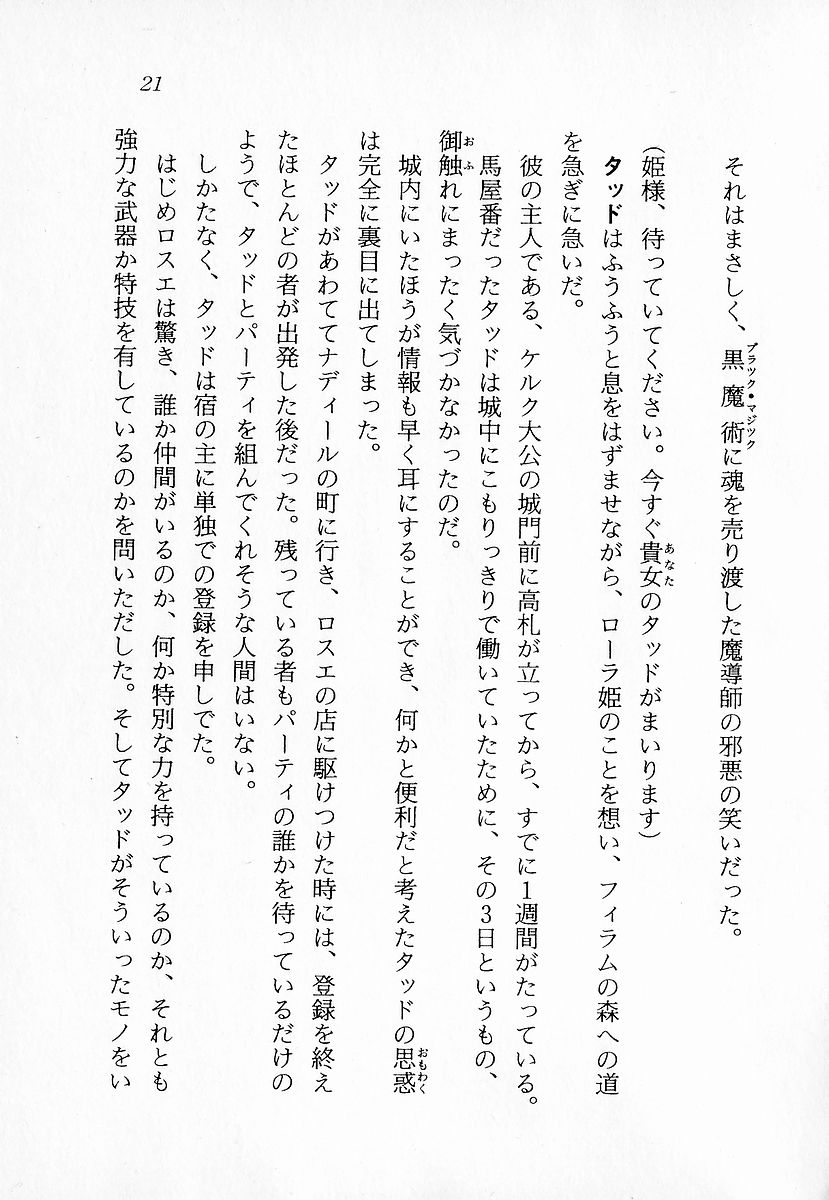 21
それはまさしく、黒魔術に魂を売り渡した魔導師の邪悪の笑いだった。
ブラック・マジック
(姫様、待っていてください。今すぐ貴女のタッドがまいります)
あなた
タッドはふうふうと息をはずませながら、ローラ姫のことを想い、フィラムの森への道
を急ぎに急いだ。
彼の主人である、ケルク大公の城門前に高札が立ってから、すでに1週間がたっている。
馬屋番だったタッドは城中にこもりっきりで働いていたために、その3日というもの、
御触れにまったく気づかなかったのだ。
おふ
城内にいたほうが情報も早く耳にすることができ、何かと便利だと考えたタッドの思惑
おもわく
は完全に裏目に出てしまった。
タッドがあわててナディールの町に行き、ロスエの店に駆けつけた時には、登録を終え
たほとんどの者が出発した後だった。残っている者もパーティの誰かを待っているだけの
ようで、タッドとパーティを組んでくれそうな人間はいない。
しかたなく、タッドは宿の主に単独での登録を申しでた。
はじめロスエは驚き、誰か仲間がいるのか、何か特別な力を持っているのか、それとも
強力な武器か特技を有しているのかを問いただした。そしてタッドがそういったモノをい